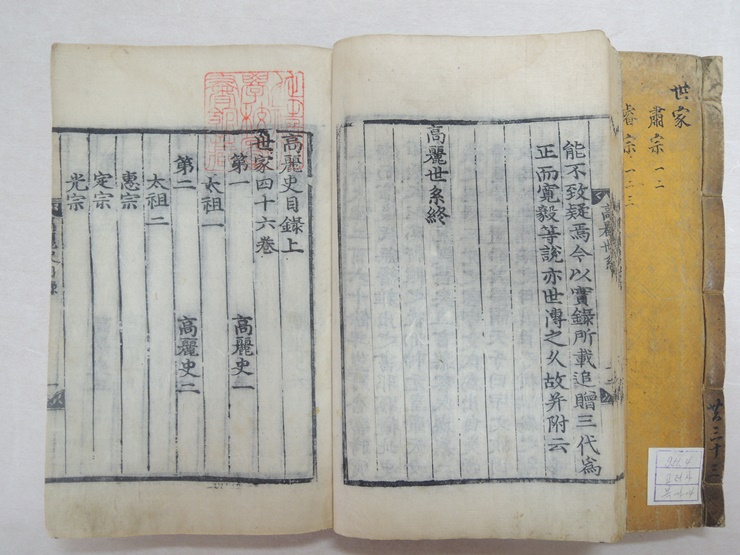 世家
肅宗 一 二
睿宗 一 二 三
共三十三
能不致疑焉今以實錄所載追贈三代爲
正而寬毅等說亦世傳之久故并附云
高麗世系終
高麗史目錄上
世家四十六卷
第一 高麗史一
太祖一
第二 高麗史二
太祖二
惠宗
定宗
光宗